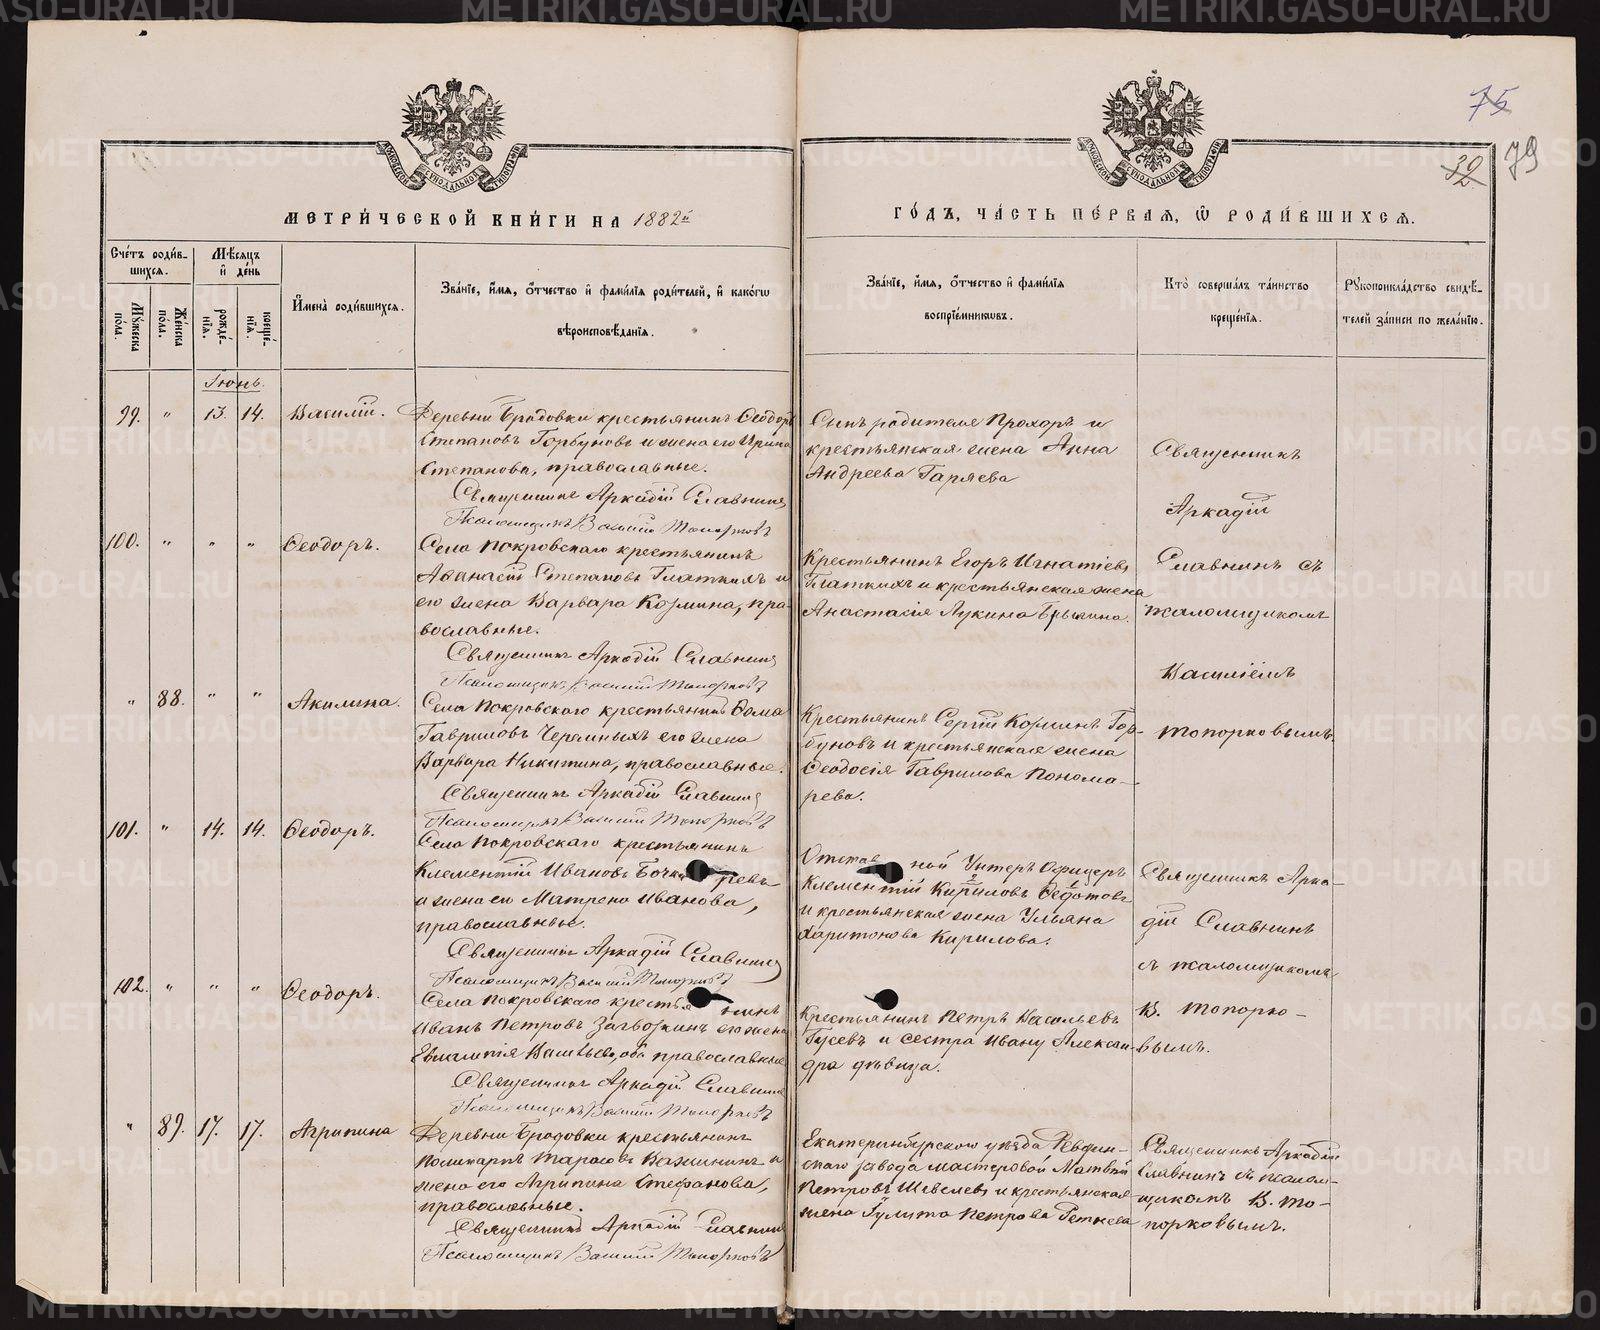 МЕТРИ́ЧЕСКОЙ КНИ́ГИ НА 1882й
ГО́ДЪ, ЧА́СТЬ ПЕ́РВАѦ, Ѽ РОДИ́ВШИХСѦ.
75
32
79
Сче́тъ роди́в-
шихсѧ.
Мѣ́сѧцъ
и҆ де́нь
Му́жеска по́ла.
Же́нска по́ла.
рожде́-нїѧ.
креще́-нїѧ.
И҆мена̀ роди́вшихсѧ.
Зва́нїе, и҆́мѧ, ѻ҆́тчество и҆ фами́лїѧ роди́телей, и҆ како́гѡ
вѣроисповѣ́данїѧ.
Зва́нїе, и҆́мѧ, ѻ҆́тчество и҆ фами́лїѧ
воспрїе́мникѡвъ.
Кто̀ соверша́лъ та́инство
креще́нїѧ.
Рꙋкоприкла́дство свидѣ́-
телей за́писи по жела́нїю.
Іюнь.
99. " 13. 14. Василій.
Деревни Бродовки крестьянинъ Ѳеодоръ
Степановъ Горбуновъ и жена его Ирина
Степанова, православные.
Священникъ Аркадій Славнинъ
Псаломщикъ Василій Топорковъ
Сынъ родителя Прохоръ и
крестьянская жена Анна
Андреева Гаряева
Священникъ
Аркадій
Славнинъ съ
псаломщикомъ
Василіемъ
Топорковымъ.
100. " " " Ѳеодоръ.
Села Покровскаго крестьянинъ
Аѳанасій Степановъ Глаткихъ и
его жена Варвара Козмина, пра-
вославные.
Священникъ Аркадій Славнинъ
Псаломщикъ Василій Топорковъ
Крестьянинъ Егоръ Игнатіевъ
Глаткихъ и крестьянская жена
Анастасія Лукина Брылина.
" 88. " " Акилина.
Села Покровскаго крестьянинъ Ѳома
Гавриловъ Черемныхъ его жена
Варвара Никитина, православные.
Священникъ Аркадій Славнинъ
Псаломщикъ Василій Топорковъ
Крестьянинъ Сергій Козминъ Гор-
буновъ и крестьянская жена
Ѳеодосія Гаврилова Понома-
рева.
101. " 14. 14. Ѳеодоръ.
Села Покровскаго крестьянинъ
Клементій Ивановъ Бочкаревъ
и жена его Матрена Иванова,
православные.
Священникъ Аркадій Славнинъ
Псаломщикъ Василій Топорковъ
Отставной Унтеръ Офицеръ
Клементій Кириловъ Ѳедотовъ
и крестьянская жена Ульяна
Харитонова Кирилова.
Священникъ Арка-
дій Славнинъ
съ псаломщикомъ
В. Топорко-
вымъ.
102. " " " Ѳеодоръ.
Села Покровскаго крестьянинъ
Иванъ Петровъ Загвозкинъ его жена
Евлампія Васильева, оба православные
Священникъ Аркадій Славнинъ
Псаломщикъ Василій Топорковъ
Крестьянинъ Петръ Васильевъ
Гусевъ и сестра Ивану Алексан-
дра дѣвица.
" 89. 17. 17. Агрипина
Деревни Бродовки крестьянинъ
Поликарпъ Тарасовъ Важнинъ и
жена его Агрипина Стефанова,
православные.
Священникъ Аркадій Славнинъ
Псаломщикъ Василій Топорковъ
Екатеринбургскаго уѣзда Ревдин-
скаго завода мастеровой Матвѣй
Петровъ Шевелевъ и крестьянская
жена Гулита Петрова Реткева
Священникъ Аркадій
Славнинъ съ псалом-
щикомъ В. То-
порковымъ.
METRIKI.GASO-URAL.RU